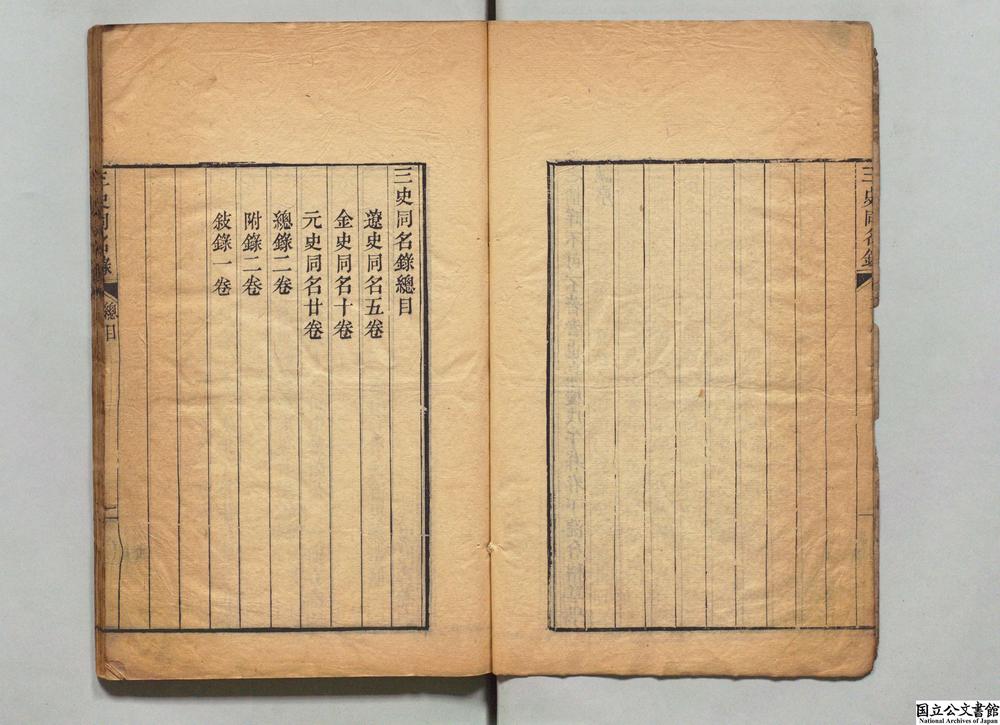 三史同名錄
三史同名錄總目
遼史同名五卷
金史同名十卷
元史同名廿卷
總錄二卷
附錄二卷
敍錄一卷
三史同名錄
總目
国立公文書館
National Archives of Japan